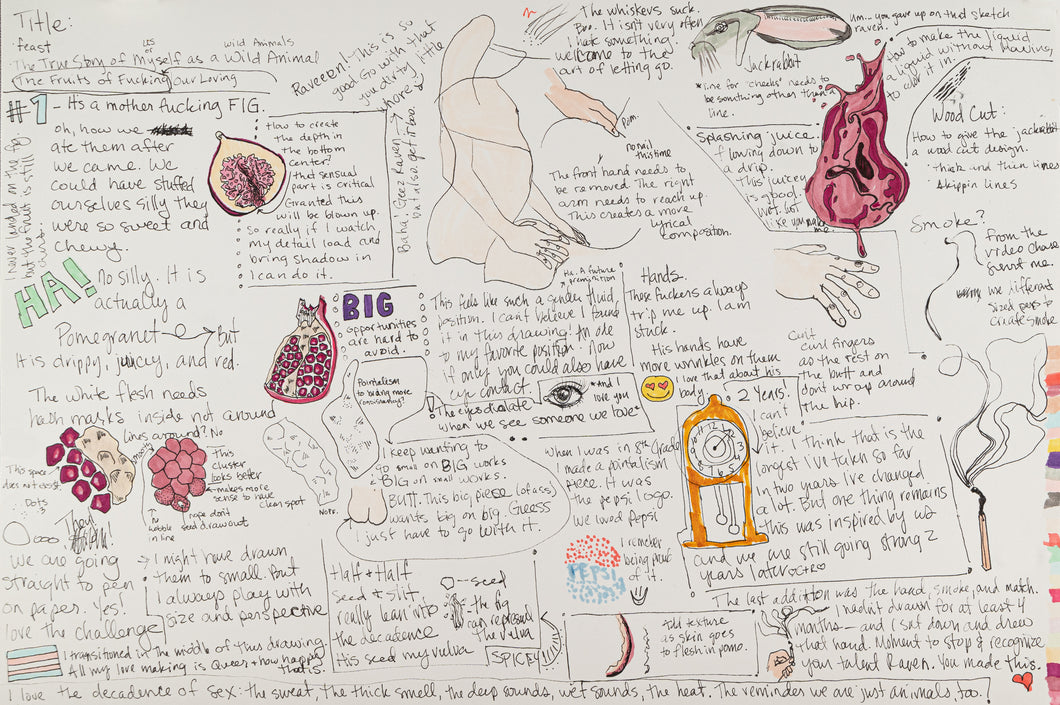 Title:
feast
us
or
wild Animals
The True Story of Myself as a Wild Animal
The Fruits of Fucking our Loving
#1 - Its a mother fucking FIG.
oh, how we
ate them after
we came. We
could have stuffed
ourselves silly they
were so sweet and
chewy.
I never landed on the fig
but the fruit is still
HA!
No silly. It is
actually a
Pomegranet
But
It is drippy, juucy, and red.
The white flesh needs
hash masks inside not around
lines around? No
mostly
This space
does not exist.
Dots
?
This
cluster
looks beter
makes more
sense to have
clean spot
nope dont
seed draw out
wobble
in line
They
we are going
straight to pen
on paper. Yes!
love the challenge
I might have drawn
them to small. But
I always play with
size and perspective
I transitioned in the middle of this drawing.
All my love making is Queer + how happy
that is.
I love the decadence of sex: the sweat, the thick smell, the deep sounds, wet sounds, the heat. The remindes we are just animals, too!
How to create
the depth in
the bottom
center?
that sensual
part is critical
Granted this
will be blown up.
so really if I watch
my detail load and
bring shadow in
I can do it.
Raveeen! This is so
good Go with that
you dirty little
whore
Baha, Goez Raven
but also get it boo.
BIG
opportunities
are hard to
avoid.
Pointalism
to bring more
consistency?
The whiskers suck.
Boo. It isn't very often
I hate something.
welcome to the
art of letting go.
Pom.
no nail
this time
The front hand needs to
be removed. The right
arm needs to reach up.
This creates a more
lyrical
composition.
Ha. A future
premonition
This feels like such a gender fluid
position. I can't believe I found
it in this drawing! An ode
to my favorite position. Now
if only you could also have
eye contact
The eyes dialate
when we see someone we love
*And I
love you
I keep wanting to
go small on BIG works
BIG on small works.
BUTT. This big piece (of ass)
wants big on big. Guess
I just have to go with it.
Note.
Half & Half
Seed & slit
really lean into
the decadence
His seed my vulva
--seed
- the fig
can represent
the vulva
SPICEY
Um... you gave up on that sketch
raven.
Jackrabbit
*line for 'cheeks' needs to
be something other than a
line.
Splashing juice.
flowing down to
a drip.
This juicey
is good.
wet. hot
like you make
me
how to make the liquid
a liquid without flowing
to color it in.
Wood Cut:
How to give the jackrabbit
a wood cut design.
- thick and thin lines
skippin lines
Smoke?
From the
video chase
sent me.
use different
sized pens to
create smoke
Hands.
These fuckers always
trip me up. I am
stuck.
His hands have
more wrinkles on them
I love that about his
body.
Can't
curl fingers
as the rest on
the butt and
dont wrap around
the hip.
2 years.
I can't
believe
it. I think that is the
longest i've taken so far
In two years I've changed
a lot. But one thing remains
this was inspired by us
and we are still going strong 2
years later
When I was in 8th Grade
I made a pointalism
piece. It was
the pepsi logo.
we loved Pepsi
PEPSI
I remeber
being proud
of it.
12
11
10
9
8
7
6
5
4
3
2
1
The last addittion was the hand, smoke, and match.
I hadn't drawn for at least 4
months — and I sat down and drew
that hand. Moment to stop & recognize
your talent Raven. You made this.
texture
as skin goes
to flesh in pomo.